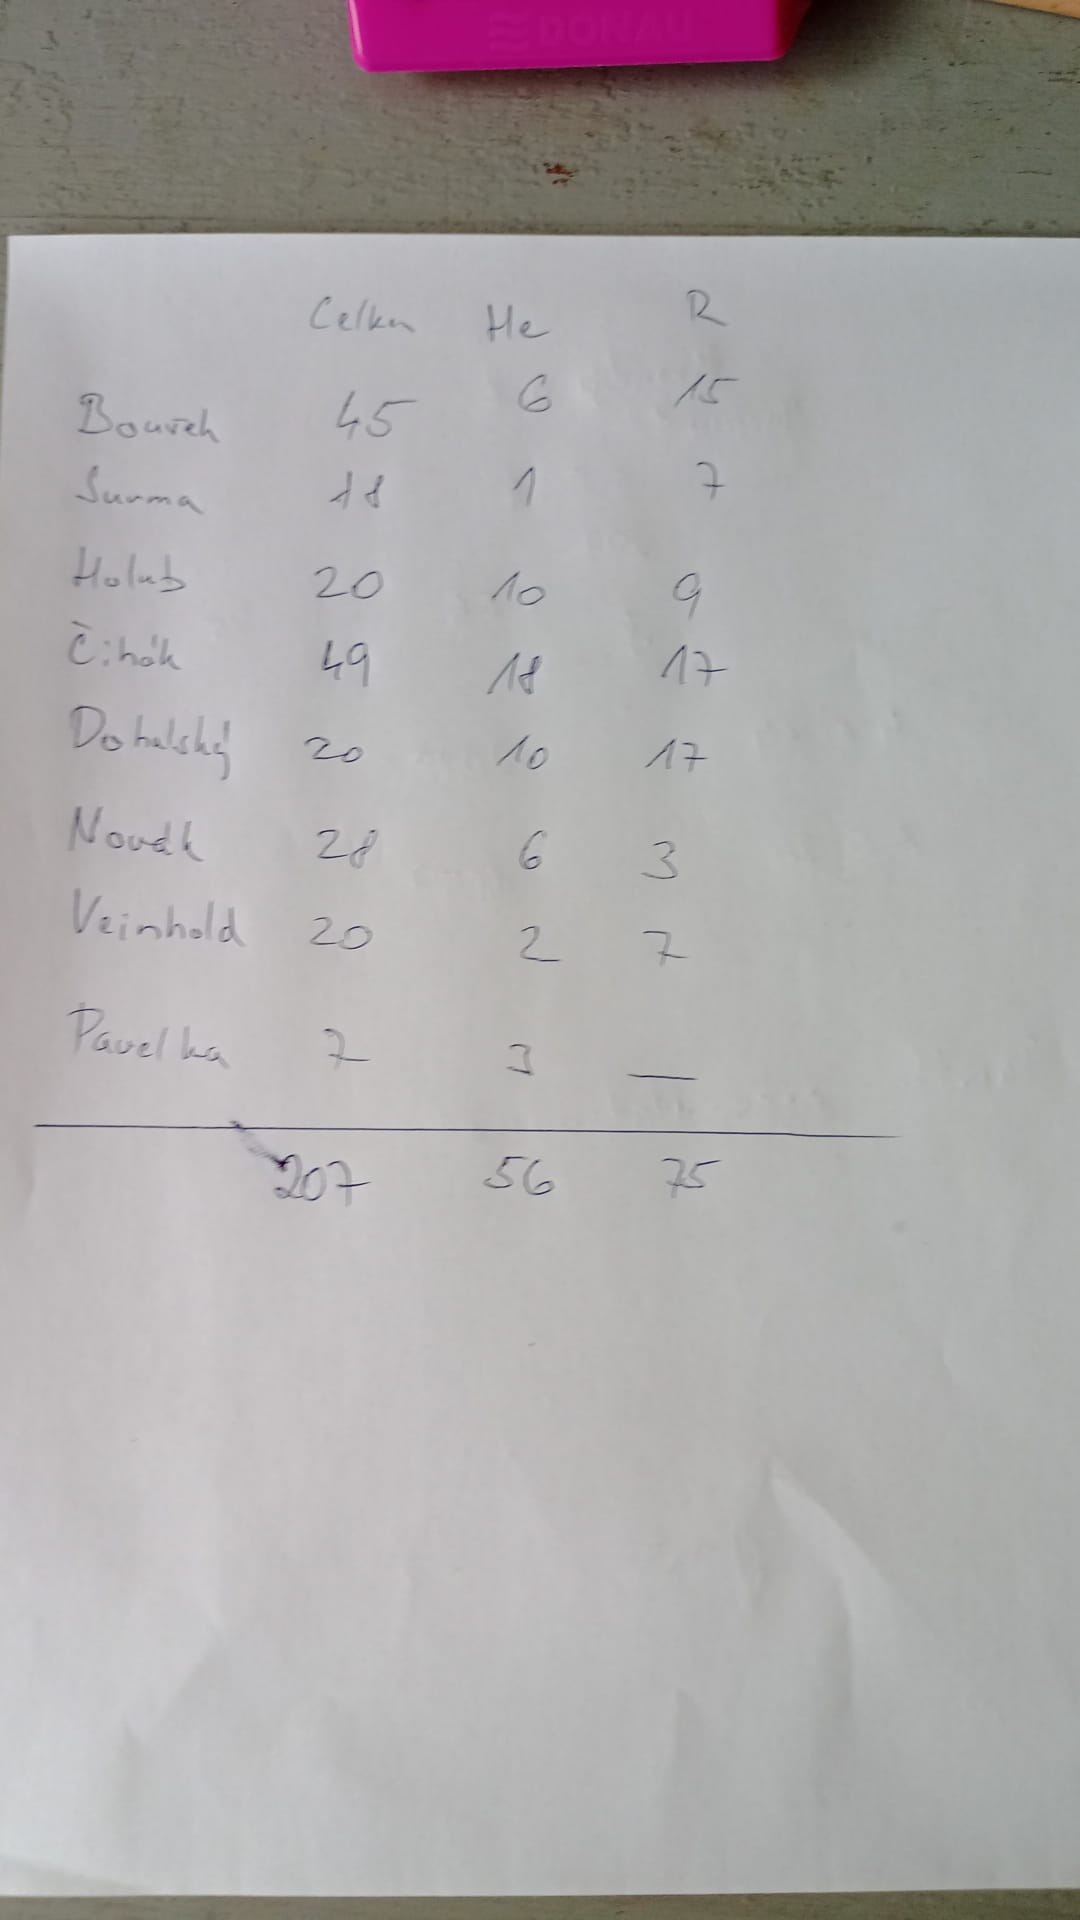 DONAU
Celkem He R
Boureh 45 6 15
Surma 18 1 7
Holub 20 10 9
Čihák 49 18 17
Dohalský 20 10 17
Novák 28 6 3
Veinhold 20 2 7
Pavelka 7 3 —
207 56 75